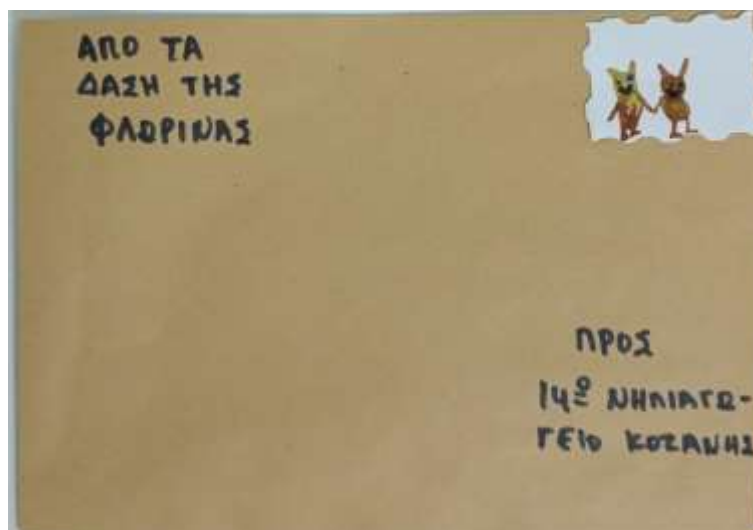 ΑΠΟ ΤΑ
ΔΑΣΗ ΤΗΣ
ΦΛΩΡΙΝΑΣ
ΠΡΟΣ
14ο ΝΗΠΙΑΓΩ-
ΓΕΙΟ ΚΟΖΑΝΗΣ